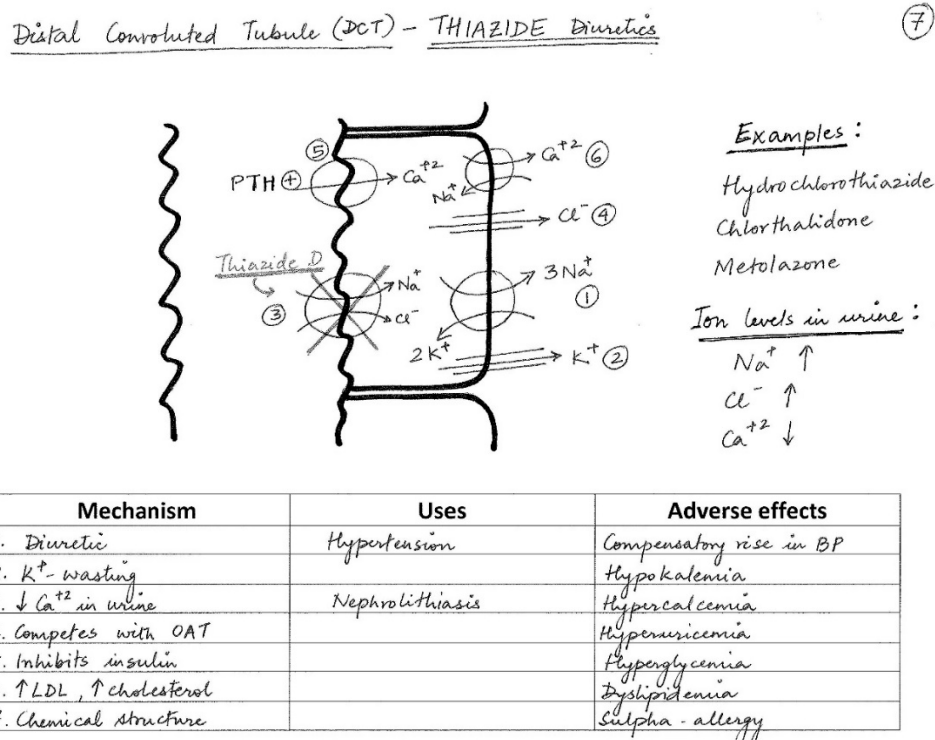 Distal Convoluted Tubule (DCT) - THIAZIDE Diuretics
7
5
PTH +
Ca+2
Ca+2 6
Na+
Cl- 4
Thiazide D
3
Na+
Cl-
3 Na+
1
2K+
K+ 2
Examples :
Hydrochlorothiazide
Chlorthalidone
Metolazone
Ion levels in urine :
Na+ ↑
Cl- ↑
Ca+2 ↓
Mechanism Uses Adverse effects
. Diuretic Hypertension Compensatory rise in BP
. K+-wasting Hypokalemia
. ↓ Ca+2 in urine Nephrolithiasis Hypercalcemia
. Competes with OAT Hyperuricemia
. Inhibits insulin Hyperglycemia
. ↑LDL, ↑cholesterol Dyslipidemia
. Chemical structure Sulpha - allergy